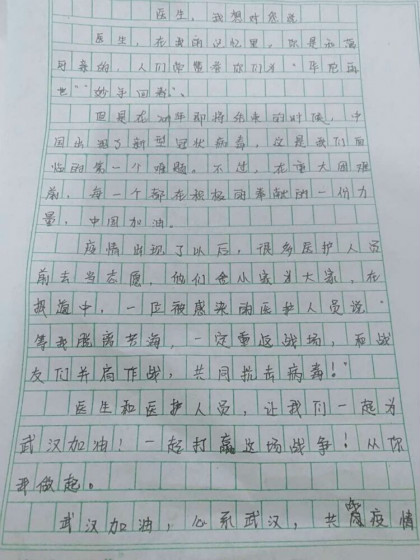 医生，我想对您说
医生，在我的记忆里，你是和蔼
可亲的，人们常赞誉你们为“华佗再
世”“妙手回春”。
但是在2019年即将结束的时候，中
国出现了新型冠状病毒，这是我们面
临的第一个难题。不过，在重大困难
前，每一个都在积极的奉献的一份力
量，中国加油。
疫情出现了以后，很多医护人员
前去当志愿，他们舍小家为大家，在
报道中，一区被感染的医护人员说“
等我脱离苦海，一定重返战场，和战
友们并肩作战，共同抗击病毒！”
医生和医护人员，让我们一起为
武汉加油！一起打赢这场战争！从你
我做起。
武汉加油，心系武汉，共 疫情